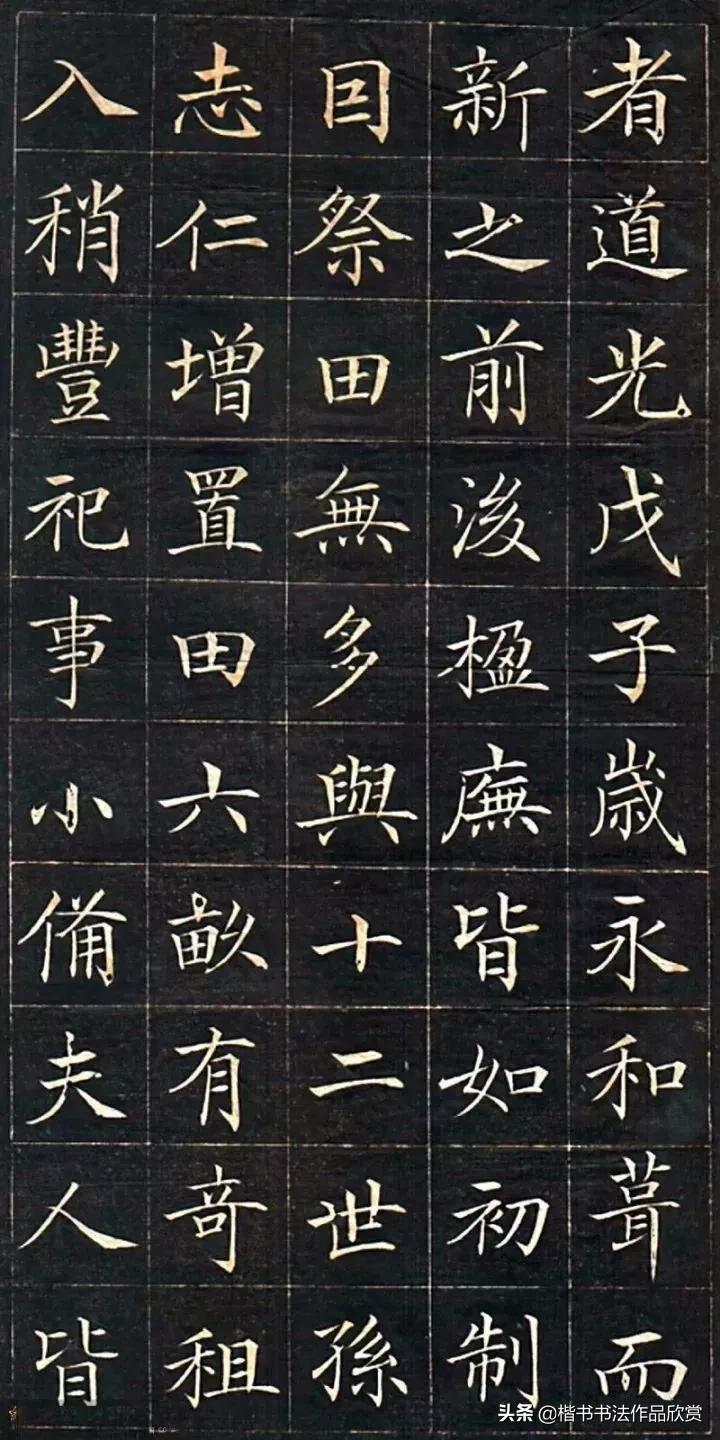 者道光戊子歲永和葺而
新之前後楹廡皆如初制
囙祭田無多與十二世孫
志仁增置田六畝有奇租
入稍豐祀事小備夫人皆
头条 @楷书书法作品欣赏